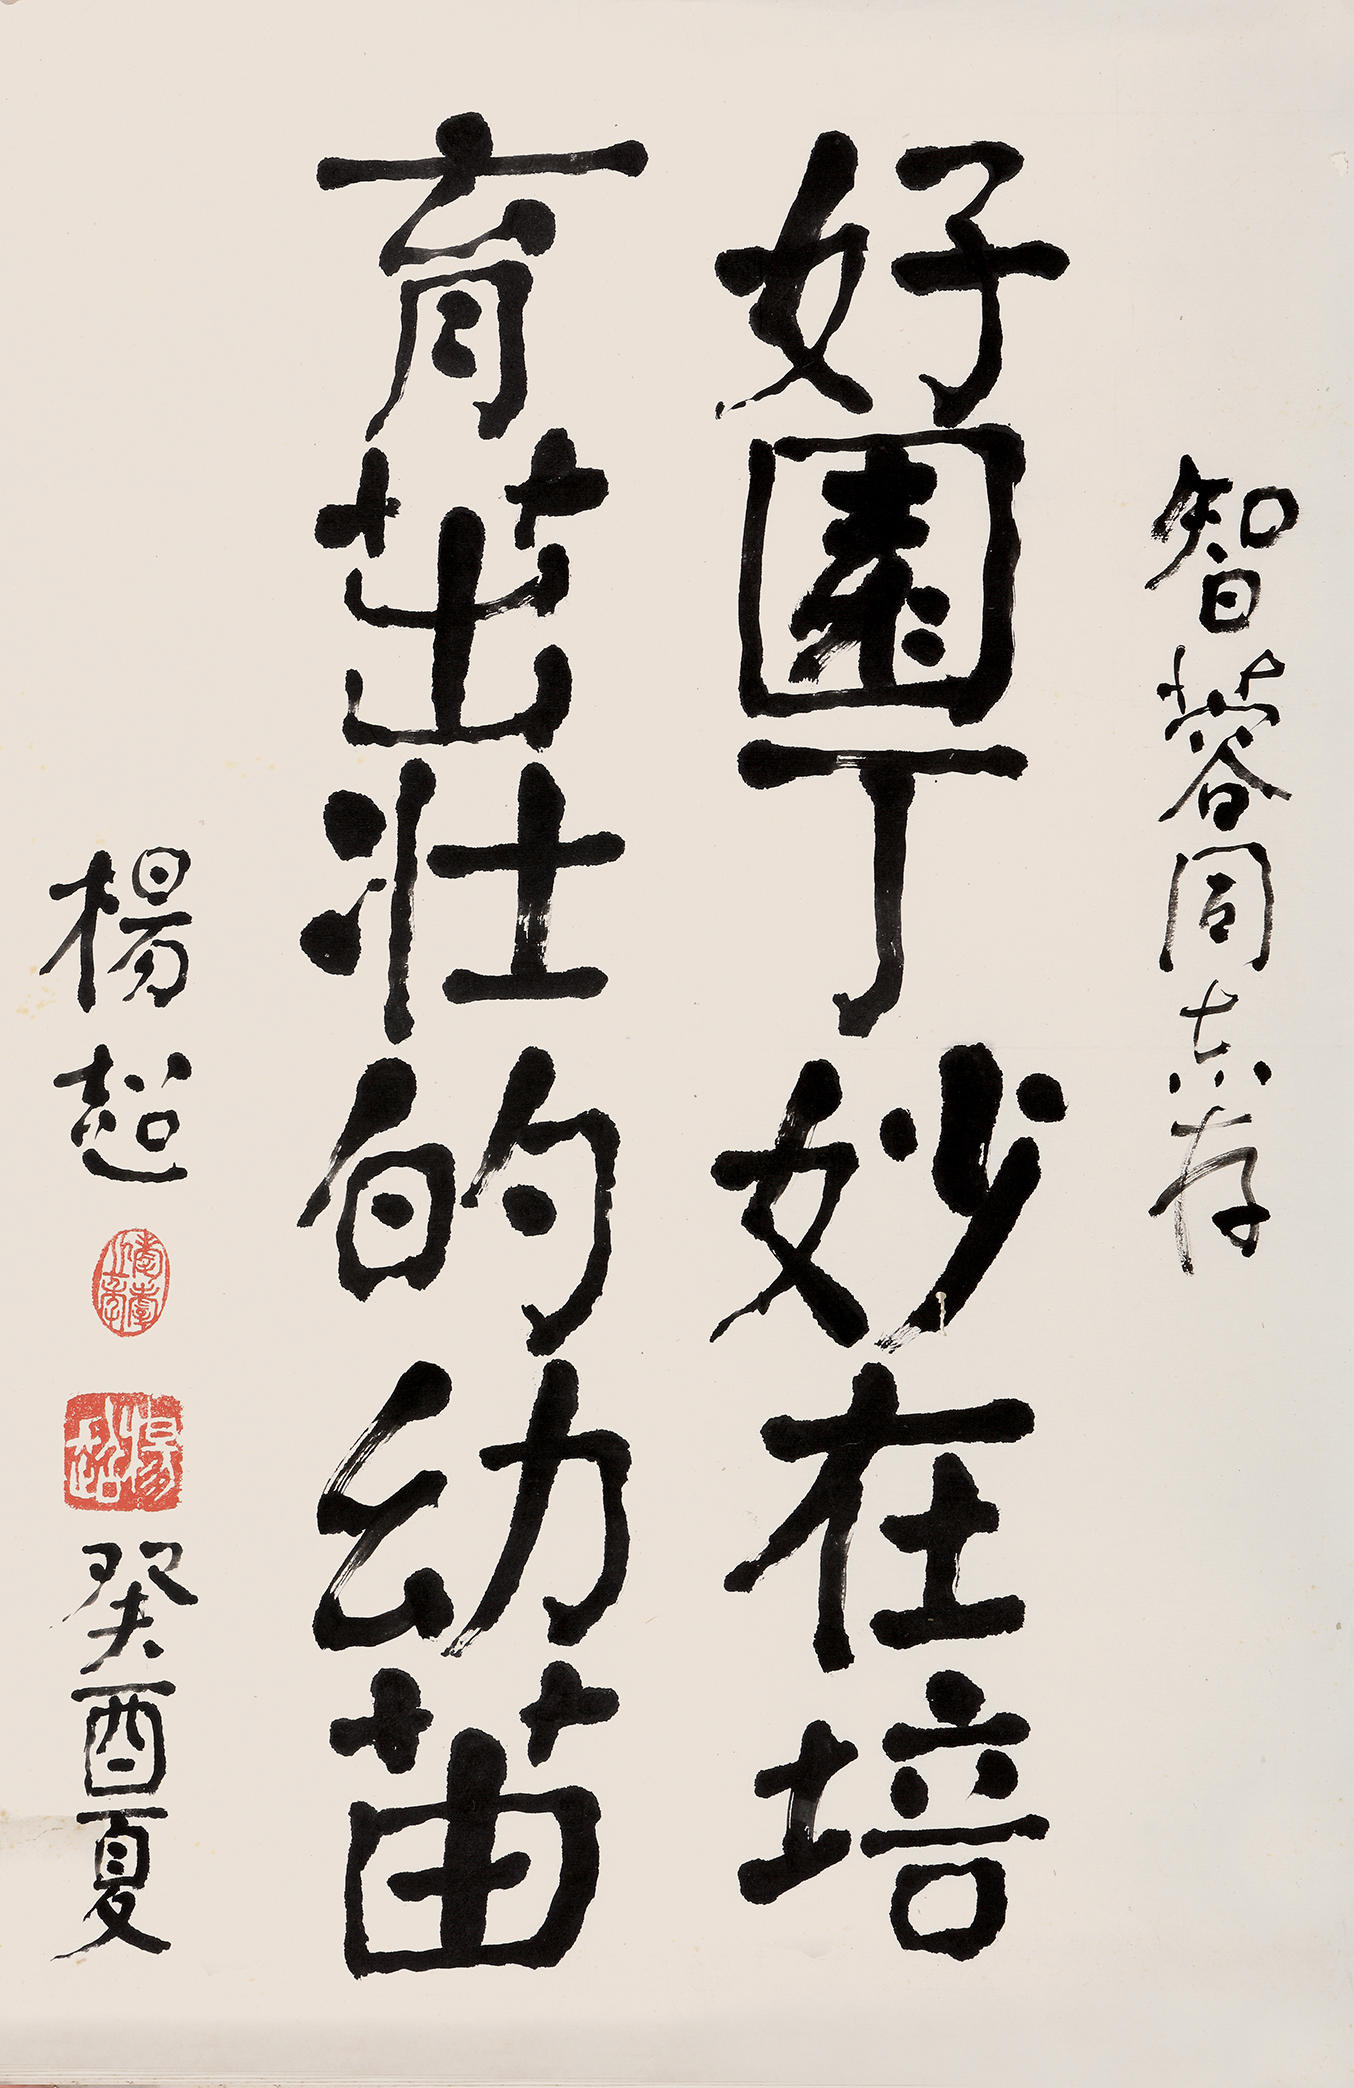 智蓉同志存
好園丁妙在培
育茁壮的幼苗
楊超
楊超
癸酉夏